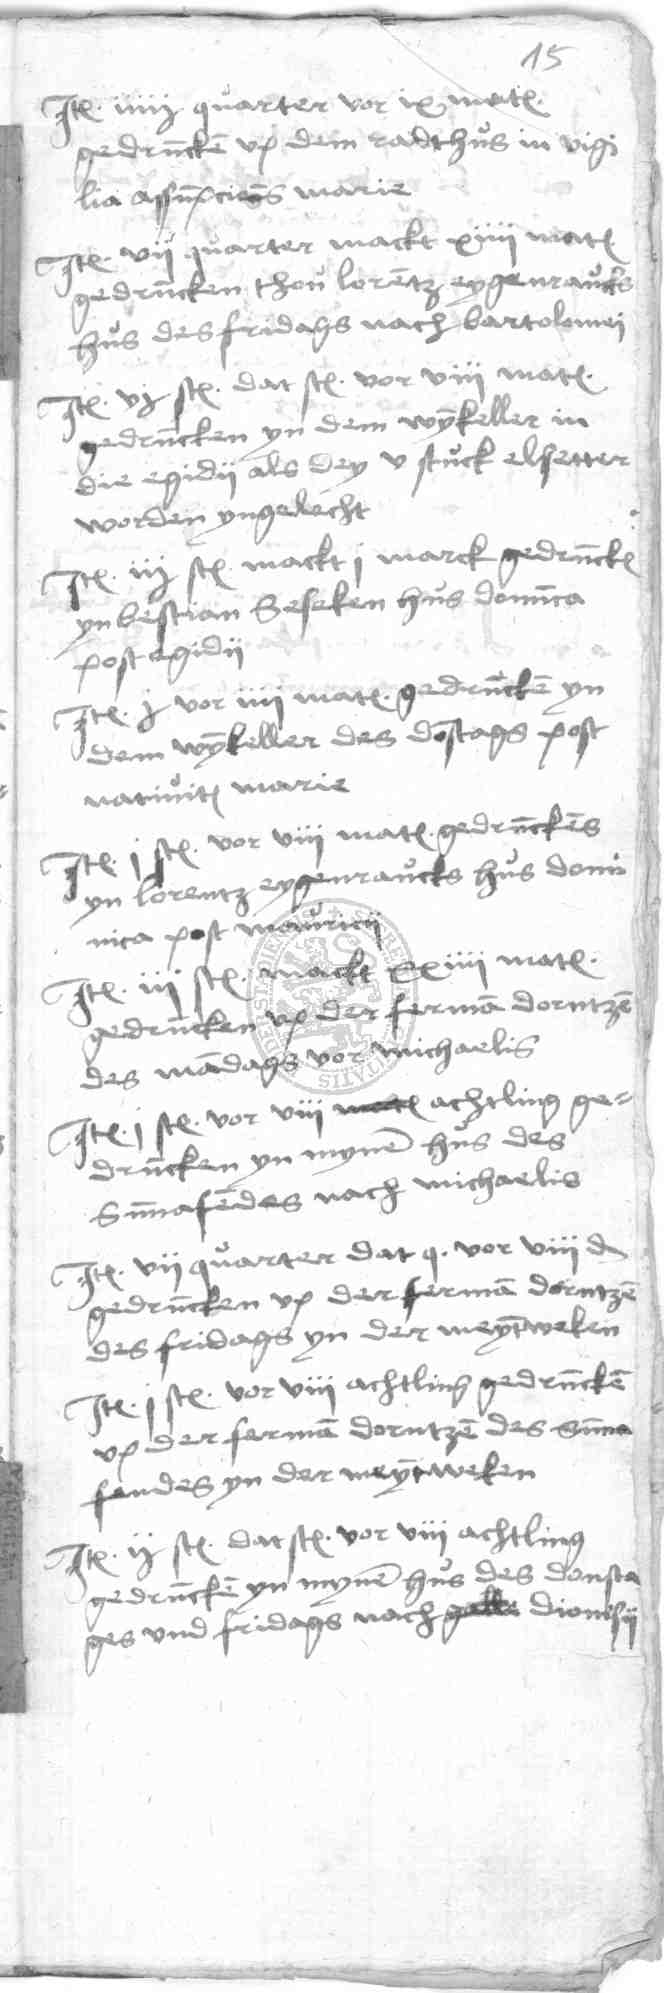 15
Itē. iiiij quarter vor ix matē.
gedrūckē vp dem radthus in vigi
lia assūpcionis marie
Itē. vij quarter mackt xiiii matē
gedrūcken thou lorētz eygenraucks
hus des fridags nach bartolomei
Itē. vj stē. dat stē. vor viii matē.
gedrūcken yn dem wȳkeller in
die egidii als dey v stuck elsetter
worden yngelecht
Itē. iij stē. mackt j marck gedrūckē
yn bestian seseken hus domīca
post egidii
Itē. j vor iiii matē. gedrūckē yn
dem wȳkeller des dōstags post
natiuitē marie
Itē. j stē. vor viii matē. gedrūckēs
yn lorentz eygenraucks hus domi
nica post mauricii
Itē. iij stē. mackt xxiiii matē.
gedrūcken vp der fermā dorntzē
des mādags vor michaelis
Itē. j stē. vor viii achtling ge=
drūcken yn mynē hus des
sūnafēdes nach michaelis
Itē. vii quarter dat q. vor viii d
gedrūcken vp der fermā dorntzē
des fridags yn der meȳtweken
Itē. j stē. vor viii achtling gedrūckē
vp der fermā dorntzē des sūna
fendes yn der meȳtweken
Itē. ij stē. dat stē. vor viii achtling
gedrūckē yn mynē hus des donsta
ges vnd fridags nach dionisii